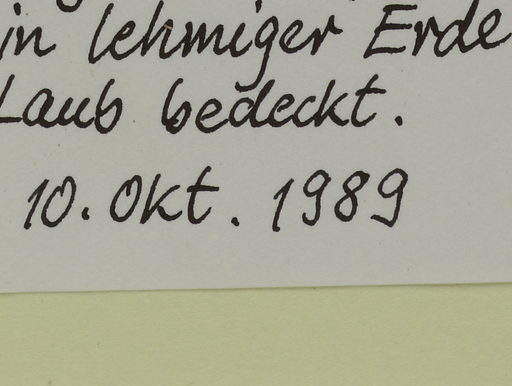 in lehmiger Erde
Laub bedeckt.
10. Okt. 1989